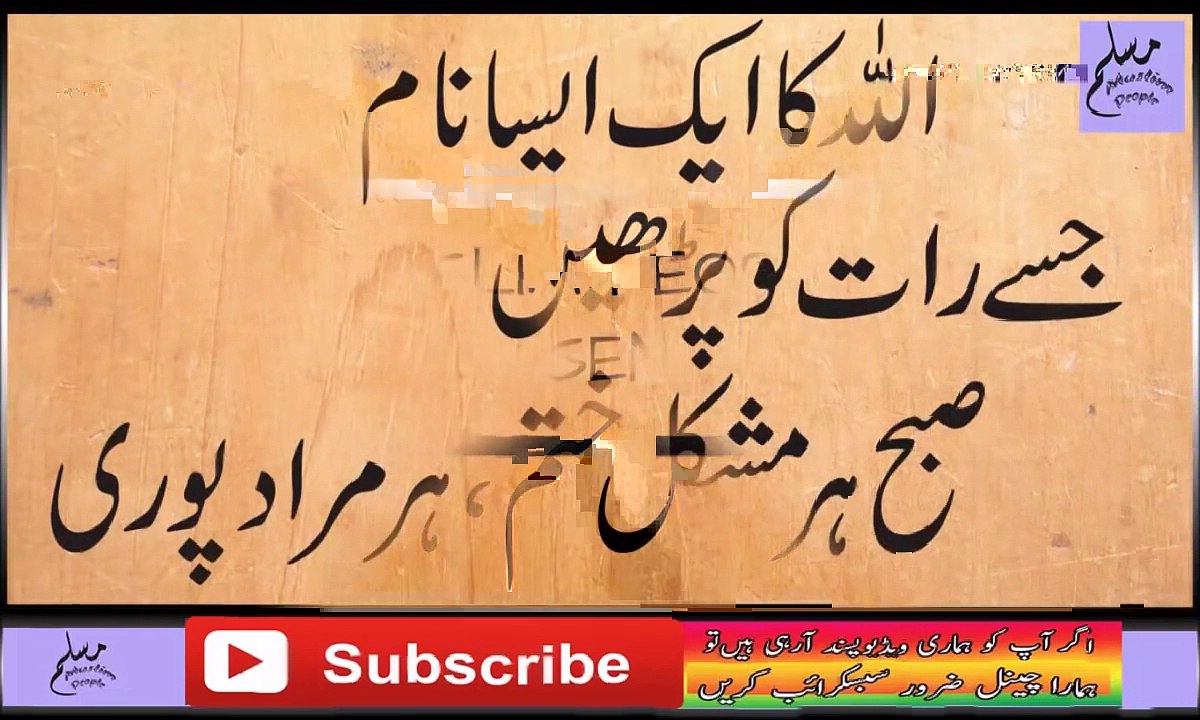 مسلم
Muslim
People
اللہ کا ایک ایسا نام
جسے رات کو پڑھیں
صبح ہر مشکل ختم، ہر مراد پوری
مسلم
Muslim
People
Subscribe
اگر آپ کو ہماری ویڈیو پسند آرہی ہیں تو
ہمارا چینل ضرور سبسکرائب کریں